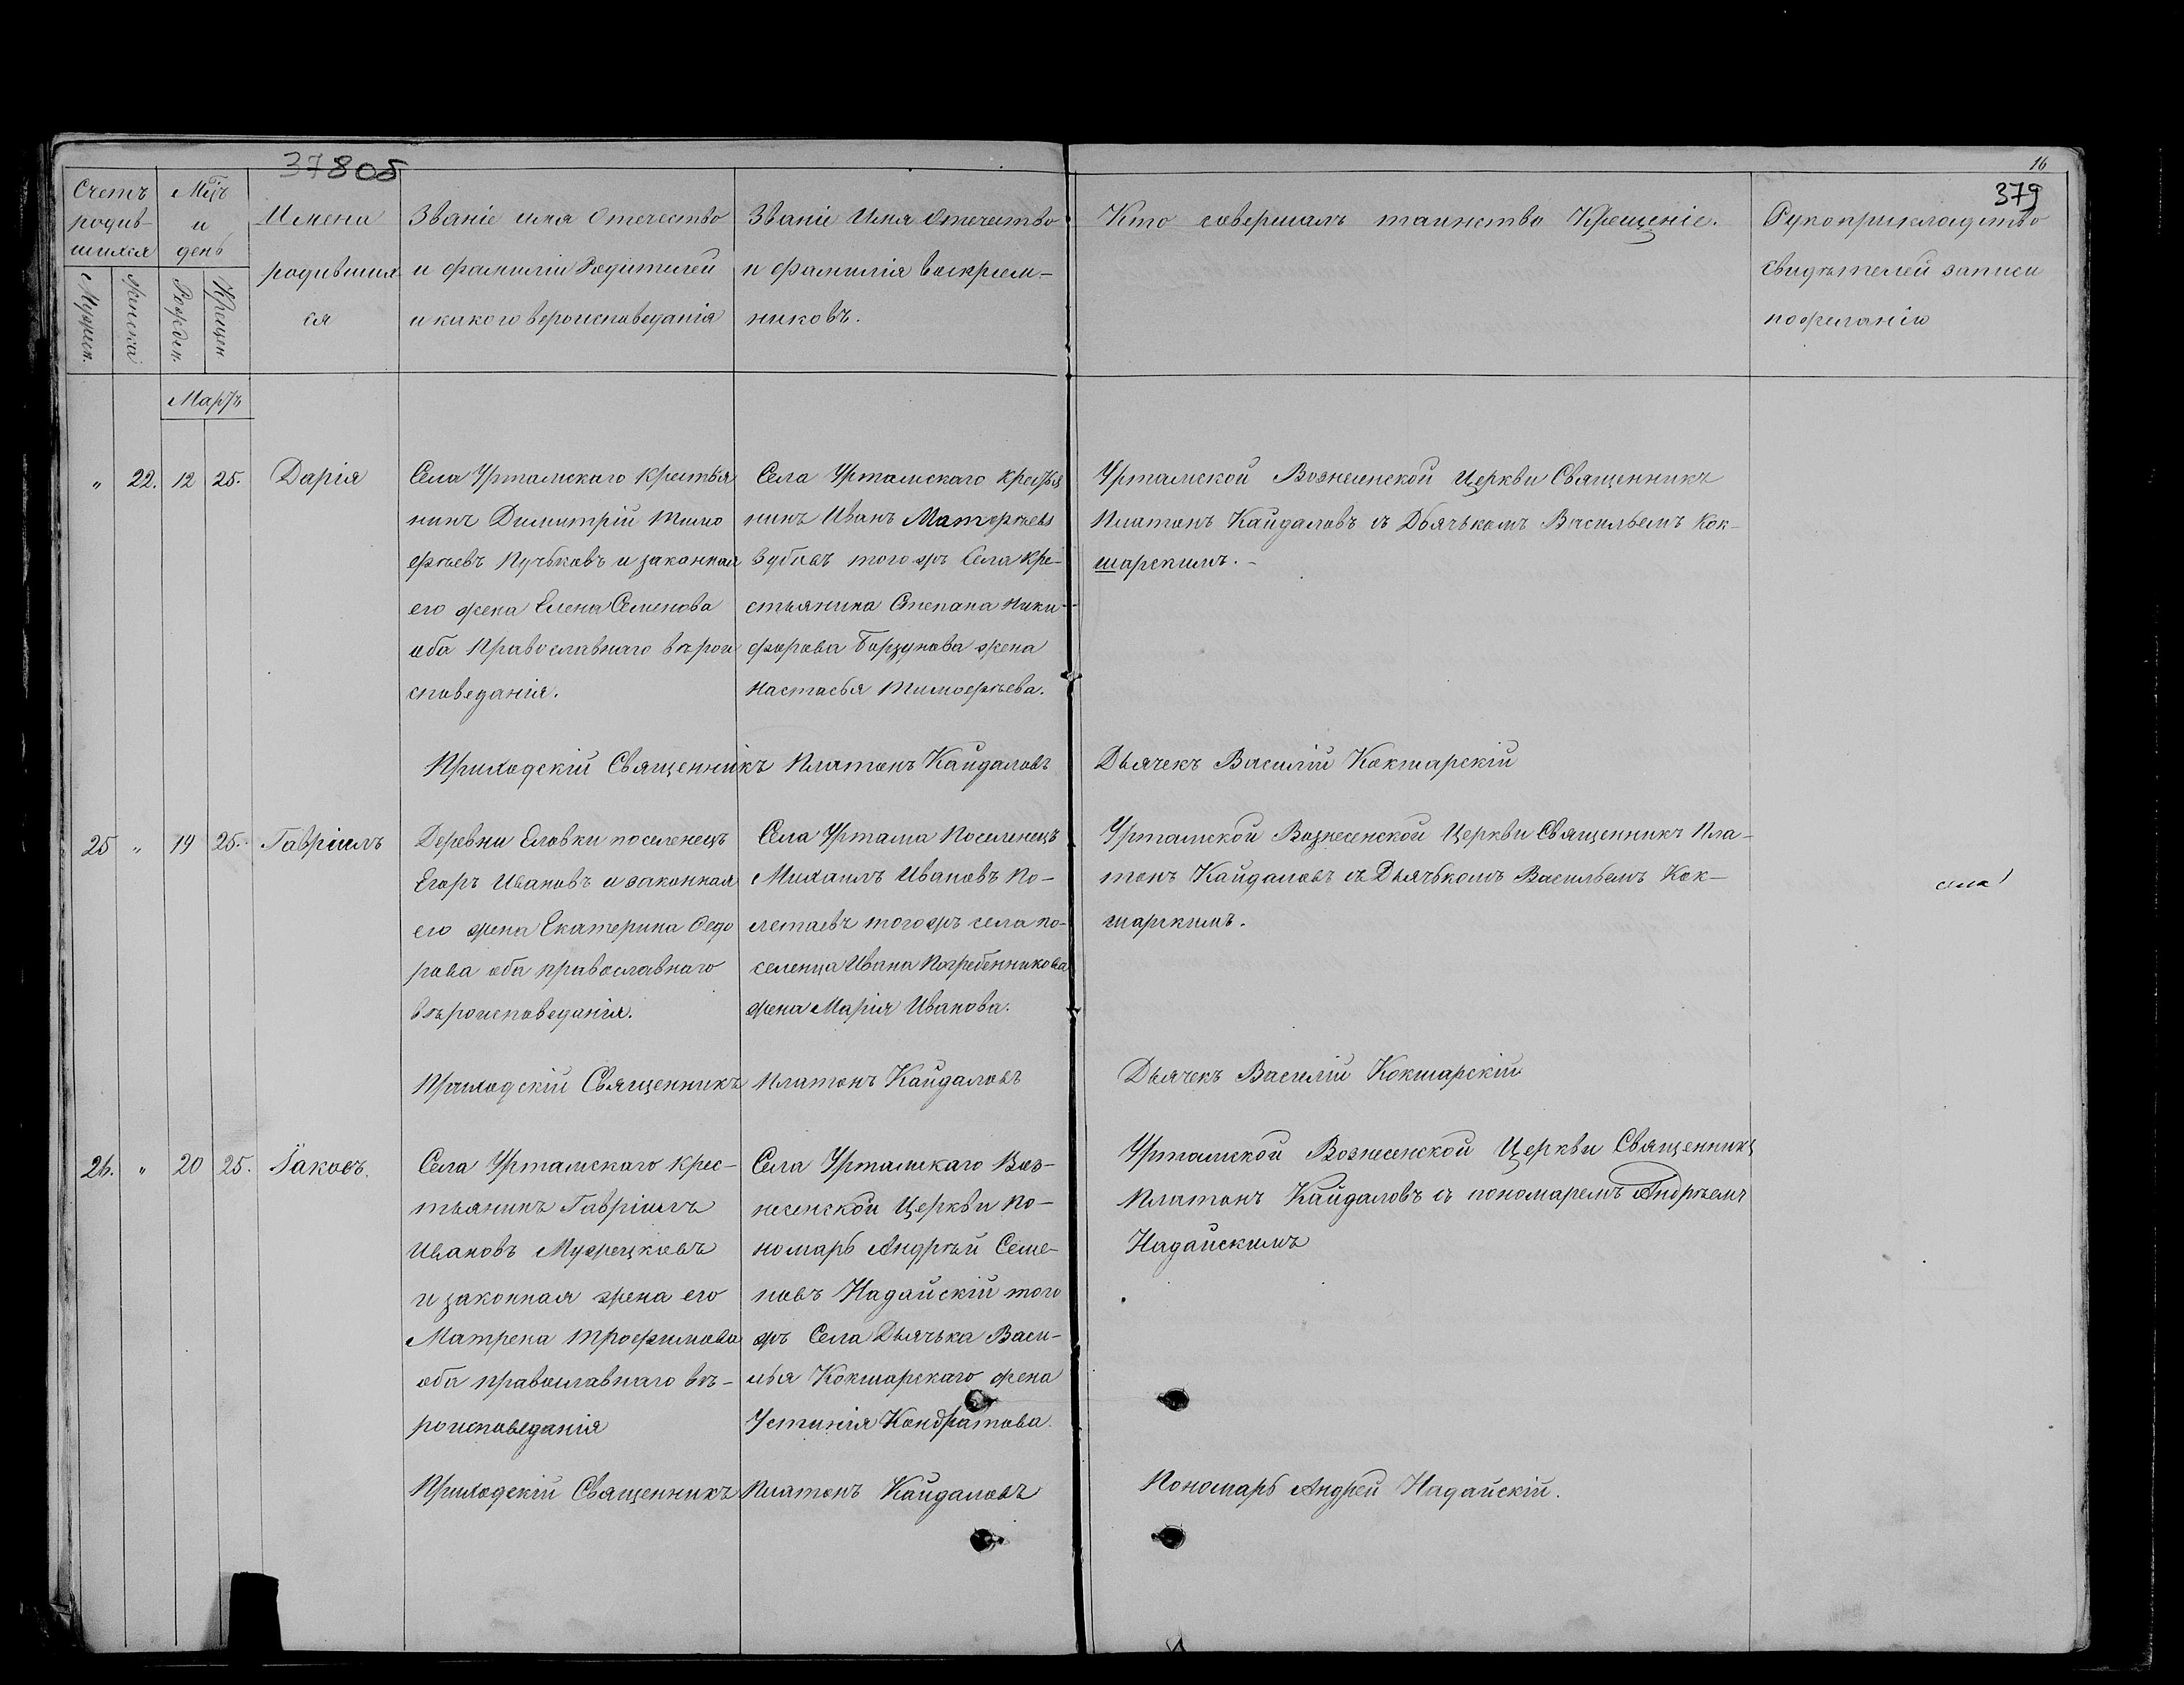 378об
16
379
Счетъ родив-
шихся
Мцъ
и
день
Имена
родивших
ся
Званіе имя Отечество
и фамиліи Родителей
и какого вероисповеданія
Званіе Имя Отечество
и фамилія воспріем-
никовъ.
Кто совершалъ таинство Крещеніе.
Рукоприкладство
свидѣтелей записи
по желанію
Мужеск.
Женска
Рожден.
Крещен
Мартъ
" 22. 12 25. Дарія
Села Уртамскаго крестья
нинъ Димитрій Тимо
фѣевъ Пучковъ и законная
его жена Елена Семенова
оба Православнаго вѣрои
споведанія.
Села Уртамскаго крестья
нинъ Иванъ Матфѣевъ
Зубовъ того жъ Села кре-
стьянина Степана Ники-
форова Борзунова жена
Настасья Тимофѣева.
Уртамской Вознесенской Церкви Священникъ
Платонъ Кайдаловъ съ Дьячькомъ Васильемъ Кок-
шарскимъ.-
Приходскій Священникъ Платонъ Кайдаловъ
Дьячекъ Василій Кокшарскій
25 " 19 25. Гавріилъ
Деревни Еловки поселенецъ
Егоръ Ивановъ и законная
его жена Екатерина Ѳедо
рова оба православнаго
вѣроисповеданія.
Села Уртама Поселенецъ
Михаилъ Ивановъ По-
летаевъ того жъ села по-
селенца Ивана Погребенникова
жена Марія Иванова.
Уртамской Вознесенской Церкви Священникъ Пла-
тонъ Кайдаловъ съ Дьячькомъ Васильемъ Кок-
шарскимъ.
Приходскій Священникъ Платонъ Кайдаловъ
Дьячекъ Василій Кокшарскій
26. " 20 25. Іаковъ.
Села Уртамскаго крес-
тьянинъ Гавріилъ
Ивановъ Мужецковъ
и законная жена его
Матрена Трофимова
оба православнаго вѣ-
роисповеданія
Села Уртамскаго Воз-
несенской Церкви По-
номарь Андрѣй Семе-
новъ Надайскій того
жъ Села Дьячька Васи-
лья Кокшарскаго жена
Устинія Кондратова.
Уртамской Вознесенской Церкви Священникъ
Платонъ Кайдаловъ съ пономаремъ Андрѣемъ
Надайскимъ
Приходскій Священникъ Платонъ Кайдаловъ
Пономарь Андрей Надайскій.